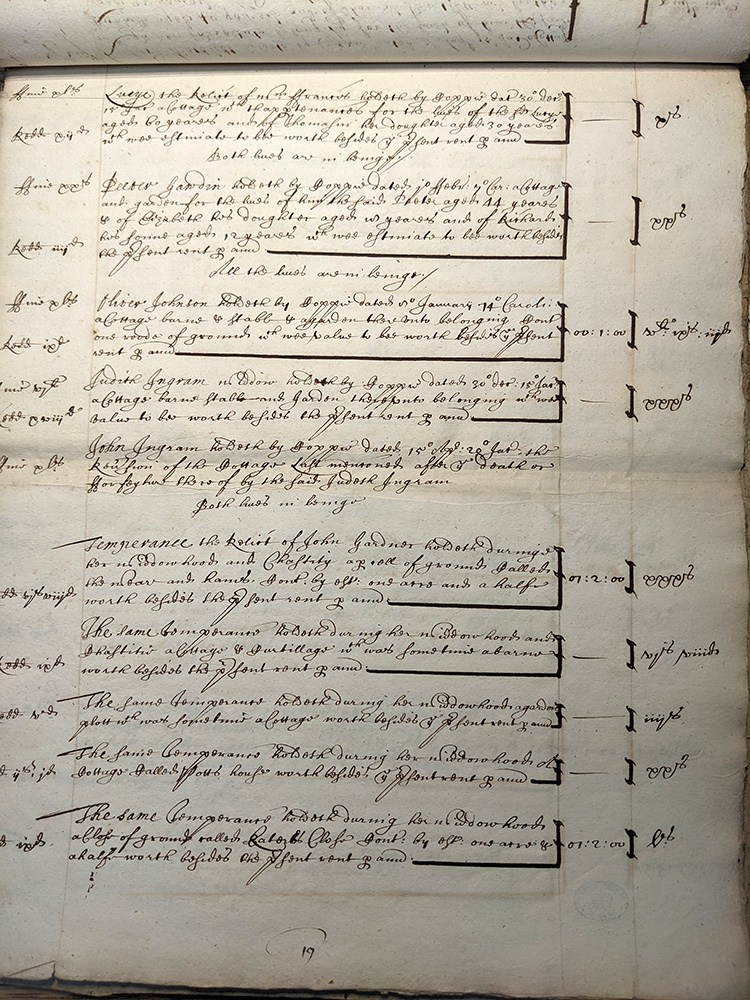 ffine xls
Lucye the Relict of mr ffrances holdeth by Coppie dat 30o dec:
Jac a Cottage wth thappurtenances for the lives of the sd Lucy
aged 60 yeares and of Thomasin her daughter aged 30 yeares
Redd xijd
wch wee estimate to bee worth besides ye psent rent p annu
xls
Both lives are in beinge
ffine xxs
Peeter Gawdin holdeth by Coppie dated jo ffebr: Car: a Cottage
and garden for the lives of him the said Peeter aged 44 yeares
& of Elizabeth his daughter aged yeares and of Richard
his sonne aged 12 yeares wch wee estimate to bee worth besides
Redd iiijd
the psent rent p annu
xxs
All the lives are in beinge
ffine xls
Oliver Johnson holdeth by Coppie dated January 14o Caroli
a Cottage barne & stable & a garden thereunto belonging Cont
one roode of ground wch wee value to bee worth besides ye psent
Redd ixd
rent p annu
00 : 1 : 00
Judith Ingram widdow holdeth by Coppie dated 30o dec: 15o Jac
a Cottage barne stable and Garden thereunto belonging wch wee
value to bee worth besides the psent rent p annu
xxxs
ffine xls
John Ingram holdeth by Coppie dated 15o 20o Jac: the
Reversion of the Cottage Last mentioned after ye death or
fforfeyture thereof by the said Judeth Ingram
Both lives in beinge
Temperance the Relict of John Gardner holdeth duringe
her widdowhood and Chastity a pcell of ground Called
the and Cont by est: one acre and a halfe
worth besides the psent rent p annu
01 : 2 : 00
xxxs
The same Temperance holdeth during her widdowhood and
Chastitie a Cottage & Curtillage wch was sometime a barne
Redd ixd
worth besides the psent rent p annu
vjs viijd
The same Temperance holdeth during her widdowhood a garden
plott wch was sometime a Cottage worth besides ye psent rent p annu
iiijs
The same Temperance holdeth during her widdowhood
Cottage Called house worth besides ye psent rent p annu
xxs
The same Temperance holdeth during her widdowhood
a Close of ground called Close Cont: by est: one acre &
a halfe worth besides the psent rent p annu
01 : 2 : 00
ls
19